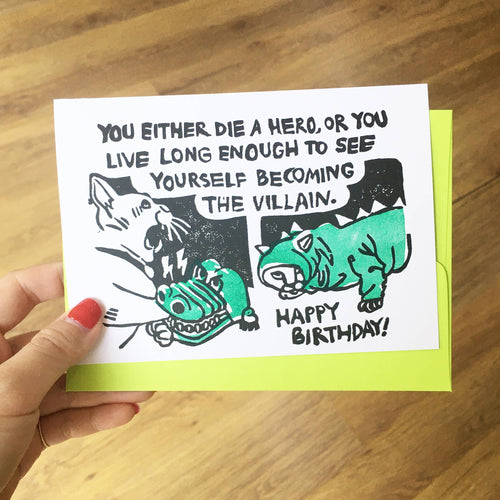 YOU EITHER DIE A HERO, OR YOU
LIVE LONG ENOUGH TO SEE
YOURSELF BECOMING
THE VILLAIN.
HAPPY
BIRTHDAY!